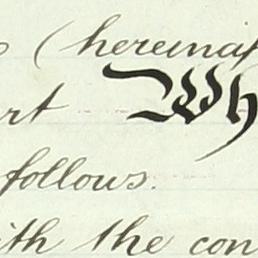 (hereinaf
rt Wh
follows.
ith the con